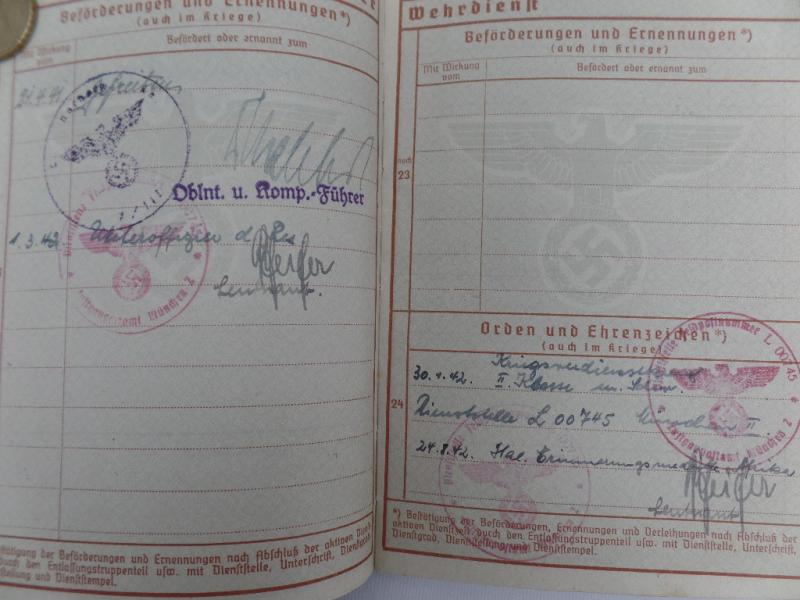 Beförderungen und Ernennungen*)
(auch im Kriege)
Mit Wirkung vom
Befördert oder ernannt zum
Gefreiten
Oblnt. u. Komp.-Führer
1.3.42 Unteroffizier d. Res
Pfeifer
Leutnant.
Luftgaupostamt München 2
Bestätigung der Beförderungen und Ernennungen nach Abschluß der aktiven
durch den Entlassungstruppenteil usw. mit Dienststelle, Unterschrift, Dienstgrad,
und Dienststempel.
Wehrdienst
Beförderungen und Ernennungen*)
(auch im Kriege)
Mit Wirkung vom
Befördert oder ernannt zum
noch 23
Orden und Ehrenzeichen*)
(auch im Kriege)
Feldpostnummer L 00745
30.1.42. Kriegsverdienstkreuz
II. Klasse m. Schw.
24
Dienststelle L 00745 München II
24.8.42. Ital. Erinnerungsmedaille Afrika
Pfeifer
Leutnant
Luftgaupostamt München 2
*) Bestätigung der Beförderungen, Ernennungen und Verleihungen nach Abschluß der
aktiven Dienstzeit durch den Entlassungstruppenteil usw. mit Dienststelle, Unterschrift,
Dienstgrad, Dienststellung und Dienststempel.